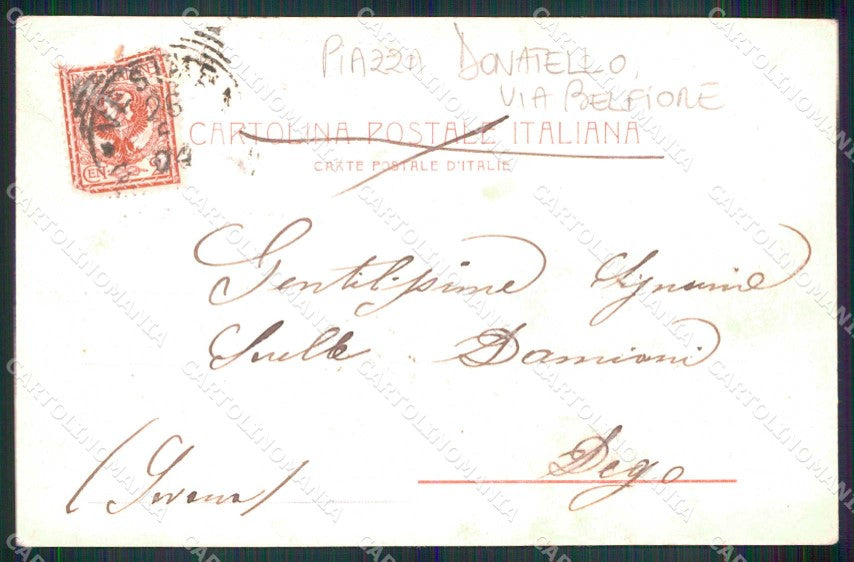 PIAZZA DONATELLO,
VIA BELFIORE
CARTOLINA POSTALE ITALIANA
CARTE POSTALE D'ITALIE
26
04
CEN
Gentilissime Signorine
Sorelle Damioni
Dego
(Savona)
CARTOLINOMANIA